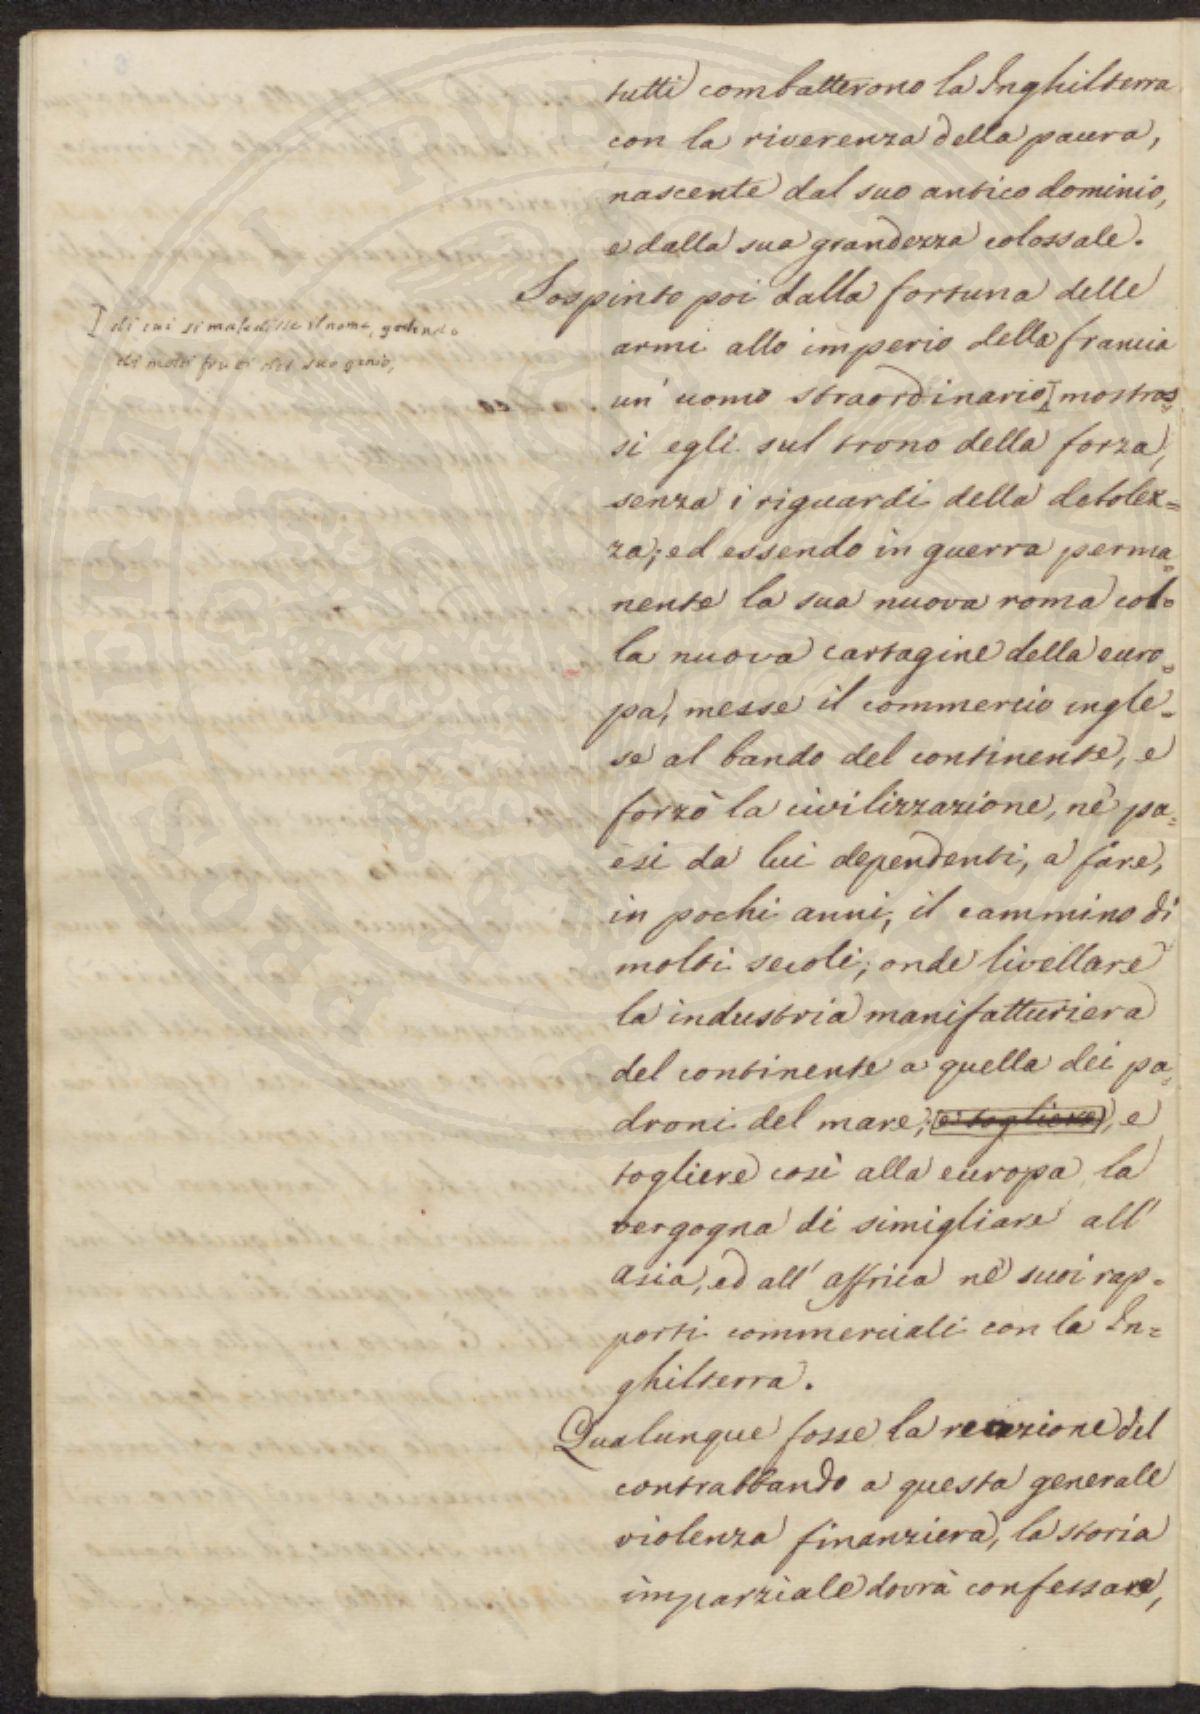 tutti combatterono la Inghilterra
con la riverenza della paura,
nascente dal suo antico dominio,
e dalla sua grandezza colossale.
Sospinto poi dalla fortuna delle
armi allo imperio della francia
un' uomo straordinario, mostros=
di cui si maledisse il nome, godendo
di molti frutti del suo genio,
si egli sul trono della forza,
senza i riguardi della debolez=
za; ed essendo in guerra perma=
nente la sua nuova roma col=
la nuova cartagine della euro=
pa, messe il commercio ingle=
se al bando del continente, e
forzò la civilizzazione, nè pa=
esi da lui dependenti, a fare,
in pochi anni, il cammino di
molti secoli; onde livellare
la industria manifatturiera
del continente a quella dei pa=
droni del mare; e togliere, e
togliere così alla europa la
vergogna di simigliare all'
asia, ed all' affrica nè suoi rap=
porti commerciali con la In=
ghilterra.
Qualunque fosse la reazione del
contrabbando a questa generale
violenza finanziera, la storia
imparziale dovrà confessare,
PUBLICI